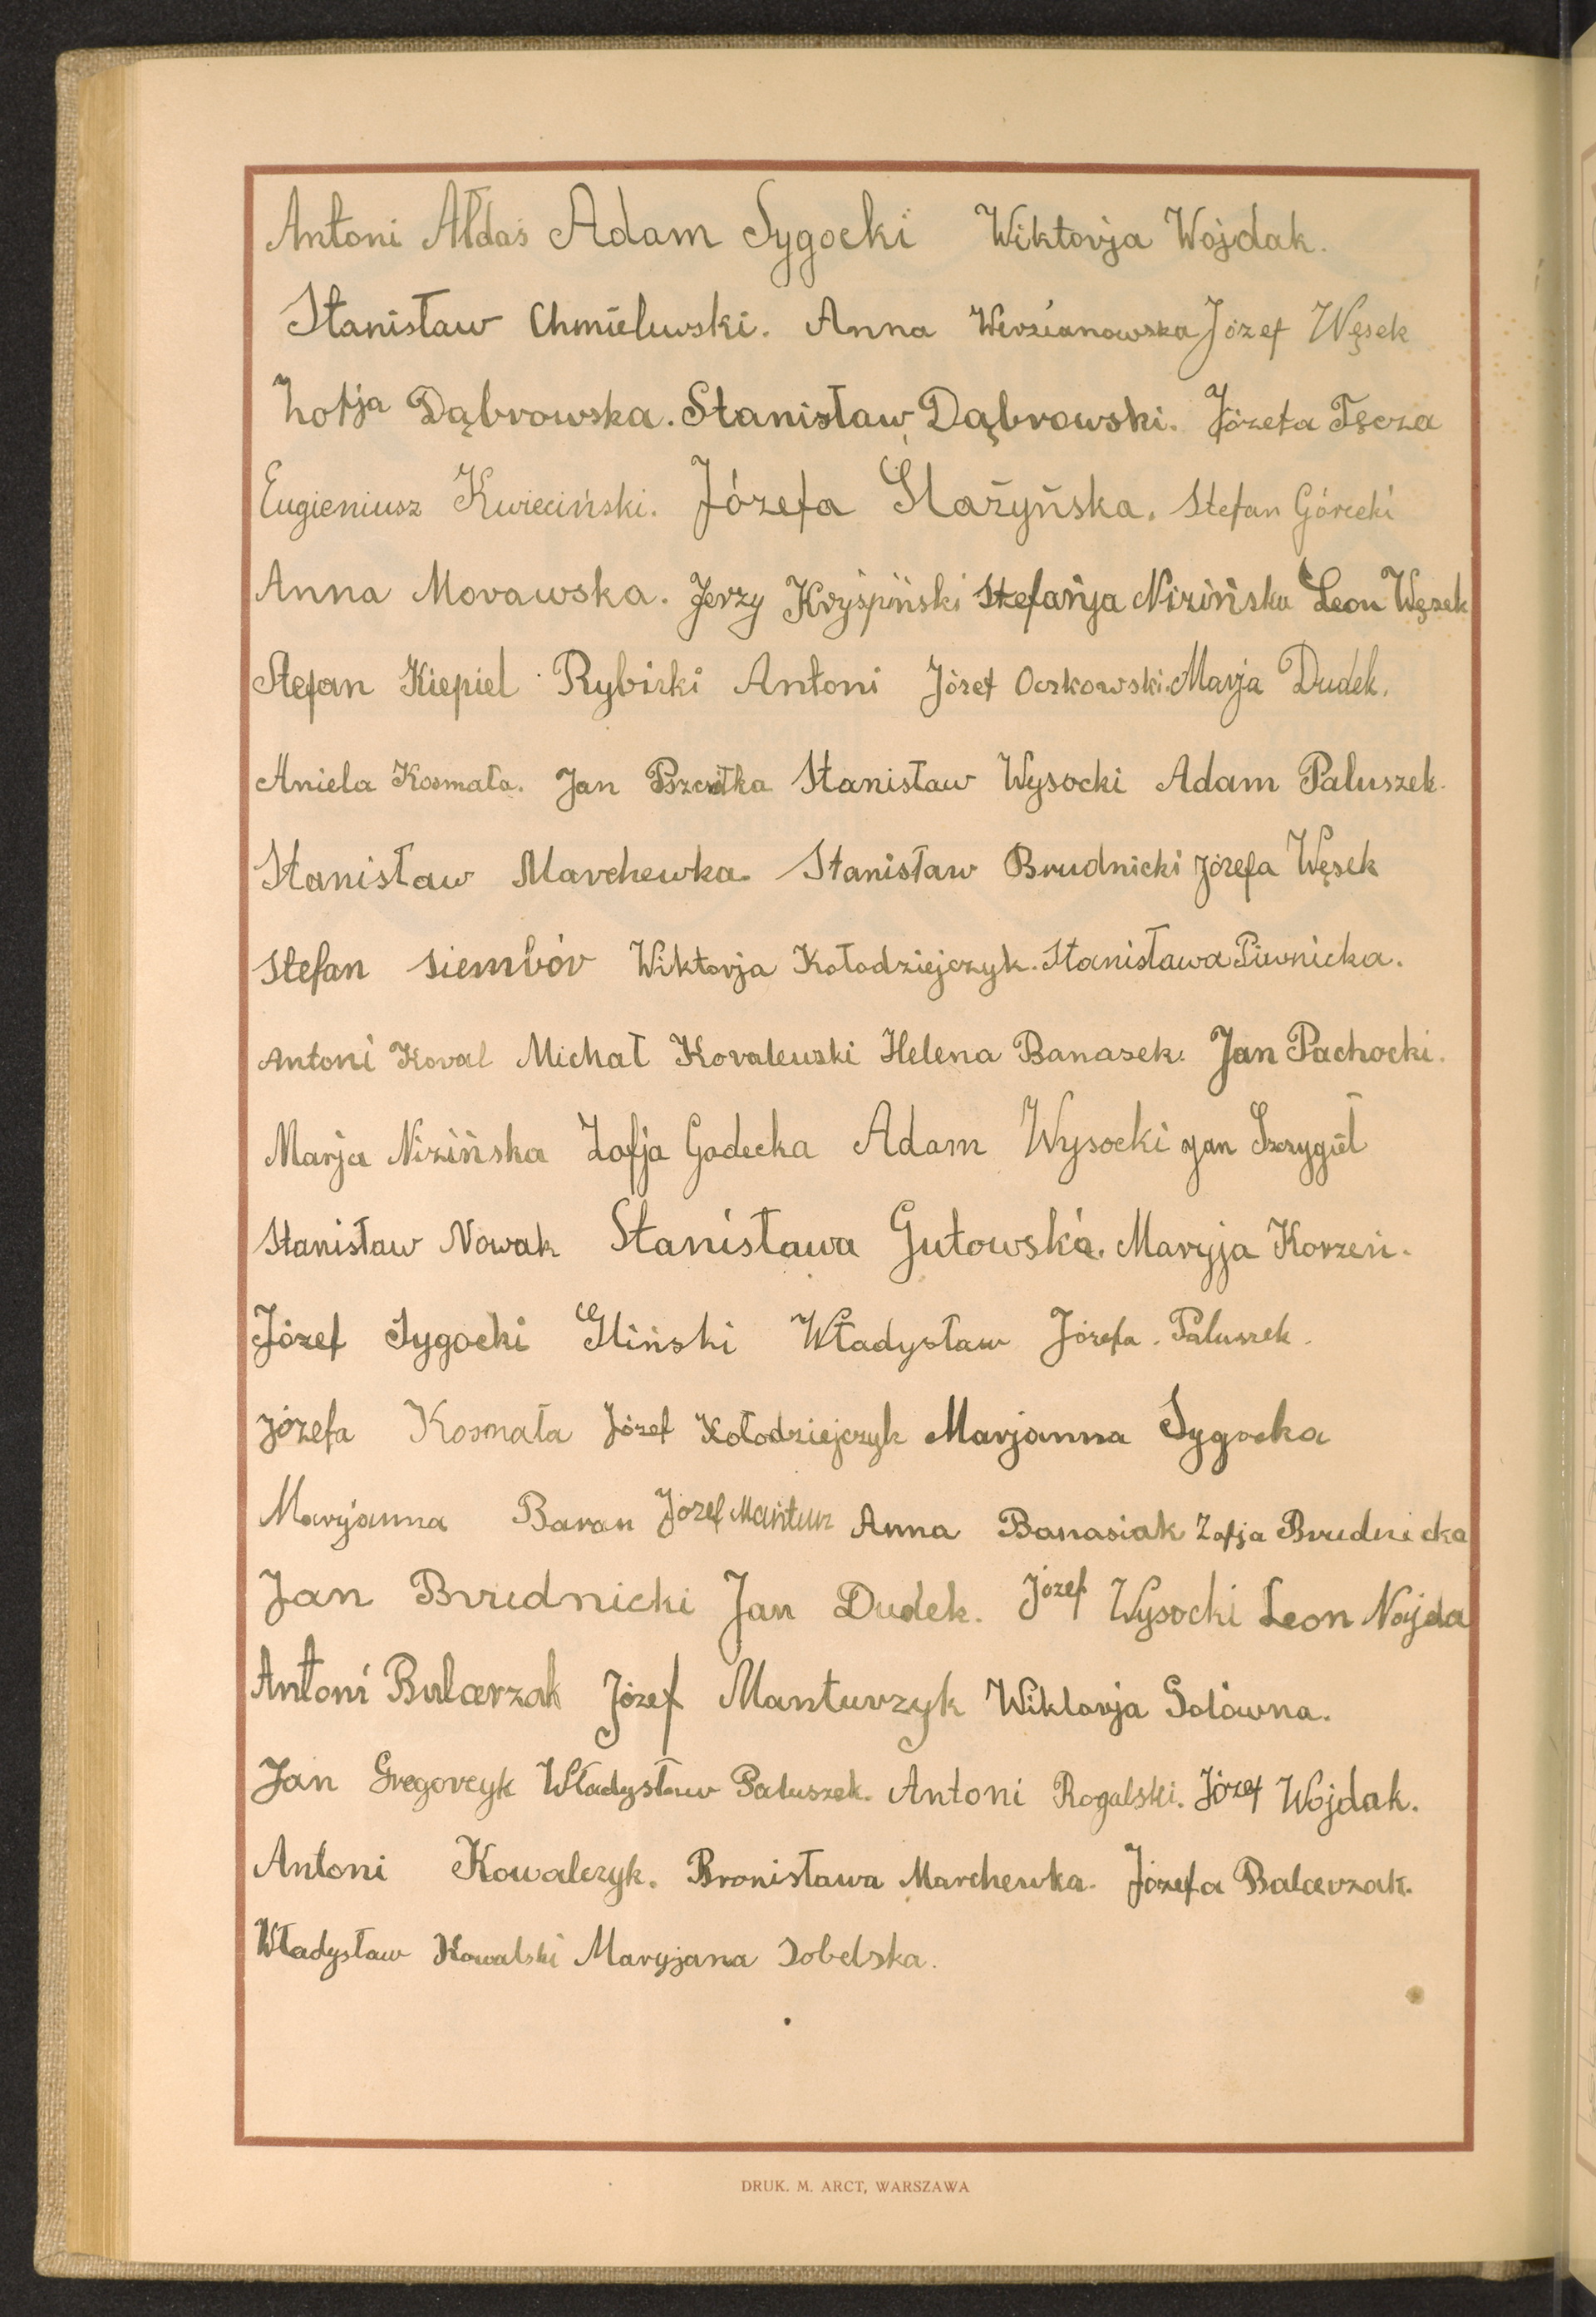 Antoni Ałdaś Adam Sygocki Wiktorja Wojdak.
Stanisław Chmielewski. Anna Wirzianowska Józef Węsek
Zofja Dąbrowska. Stanisław Dąbrowski. Józefa Tęcza
Eugieniusz Kwieciński. Józefa Ślażyńska. Stefan Górecki
Anna Morawska. Jerzy Kryśpiński Stefańja Nizińska Leon Węsek
Stefan Kiepiel Rybicki Antoni Józef Oczkowski. Marja Dudek.
Aniela Kosmała. Jan Pszczółka Stanisław Wysocki Adam Paluszek.
Stanisław Marchewka Stanisław Brudnicki Józefa Węsek
Stefan Siembór Wiktorja Kołodziejczyk. Stanisława Piwnicka.
Antoni Koval Michał Kovalewski Helena Banasek. Jan Pachocki.
Marja Nizińska Zofja Godecka Adam Wysocki Jan Szczygieł
Stanisław Nowak Stanisława Gutowska. Maryja Korzeń.
Józef Sygocki Gliński Władysław Józefa. Paluszek.
Józefa Kosmała Józef Kołodziejczyk Marjanna Sygocka
Maryjanna Baran Józef Mantur Anna Banasiak Zofja Brudnicka
Jan Brudnicki Jan Dudek. Józef Wysocki Leon Nojda
Antoni Józef Manturzyk Wiktorja Sołówna.
Jan Gregorcyk Władysław Paluszek. Antoni Rogalski. Józef Wojdak.
Antoni Kowalczyk. Bronisława Marchewka. Józefa Balcerzak.
Władysław Kowalski Maryjana Sobelska.
DRUK. M. ARCT, WARSZAWA